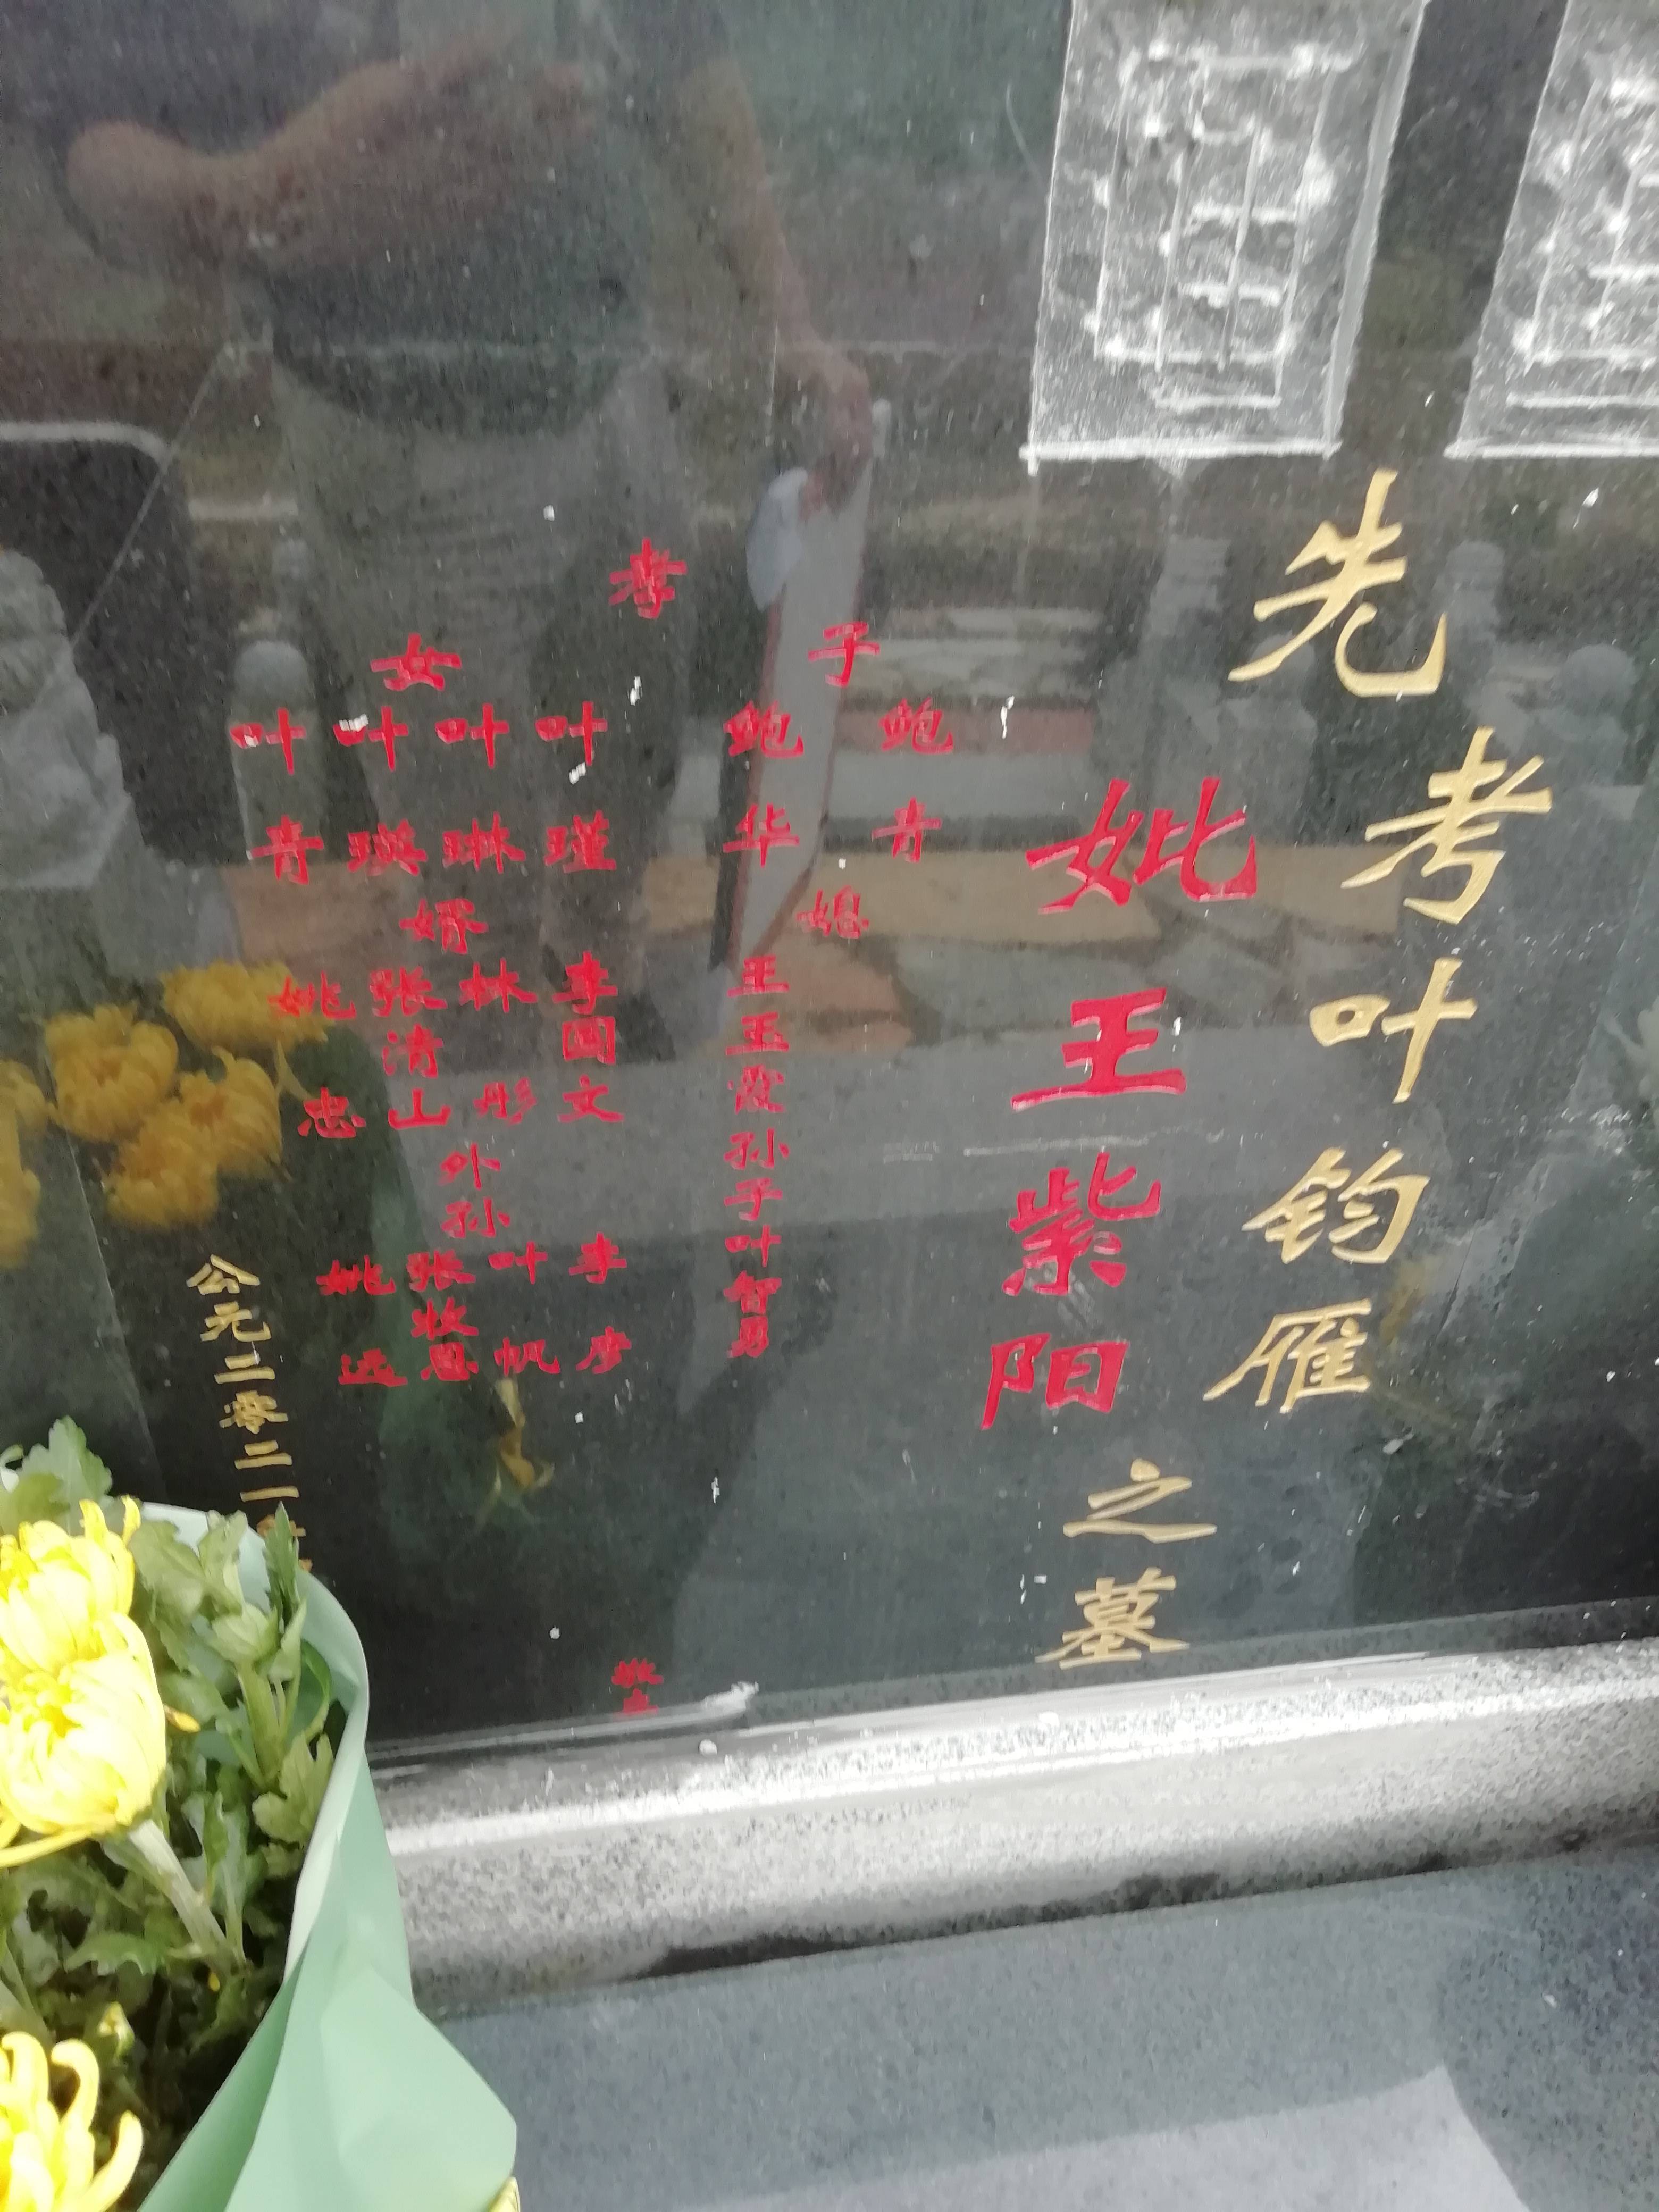 先考叶钧雁
妣王紫阳
之墓
孝
子
鲍青
鲍华
媳
王玉霞
孙子叶智勇
女
叶瑾
叶琳
叶瑛
叶青
婿
李国文
林彤
张清山
姚忠
外孙
李彦
叶帆
张牧恩
姚远
敬立
公元二零二一